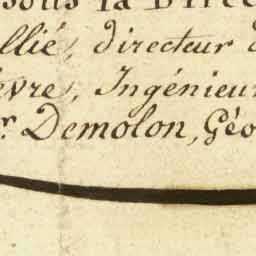 sous la Direc
llié, directeur d
èvre, Ingénieur
r. Demolon, Géo